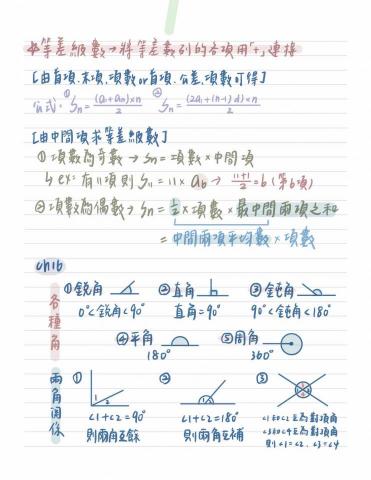 等差級數→將等差數列的各項用「+」連接
[由首項、末項、項數or首項、公差、項數可得]
公式:① Sn = (a1+an)×n / 2  ② Sn = (2a1+(n-1)d)×n / 2
[由中間項求等差級數]
①項數為奇數→Sn=項數×中間項
↳ex:有11項則S11=11×a6→ 11+1 / 2 =6(第6項)
②項數為偶數→Sn=1/2×項數×最中間兩項之和
=中間兩項平均數×項數
ch1b
各種角
①銳角 ②直角 ③鈍角
0°<銳角<90° 直角=90° 90°<鈍角<180°
④平角 ⑤周角
180° 360°
兩角關係
① ② ③
1 2
∠1+∠2=90° ∠1+∠2=180° ∠1和∠2互為對頂角
則兩角互餘 則兩角互補 ∠3和∠4互為對頂角
則∠1=∠2、∠3=∠4